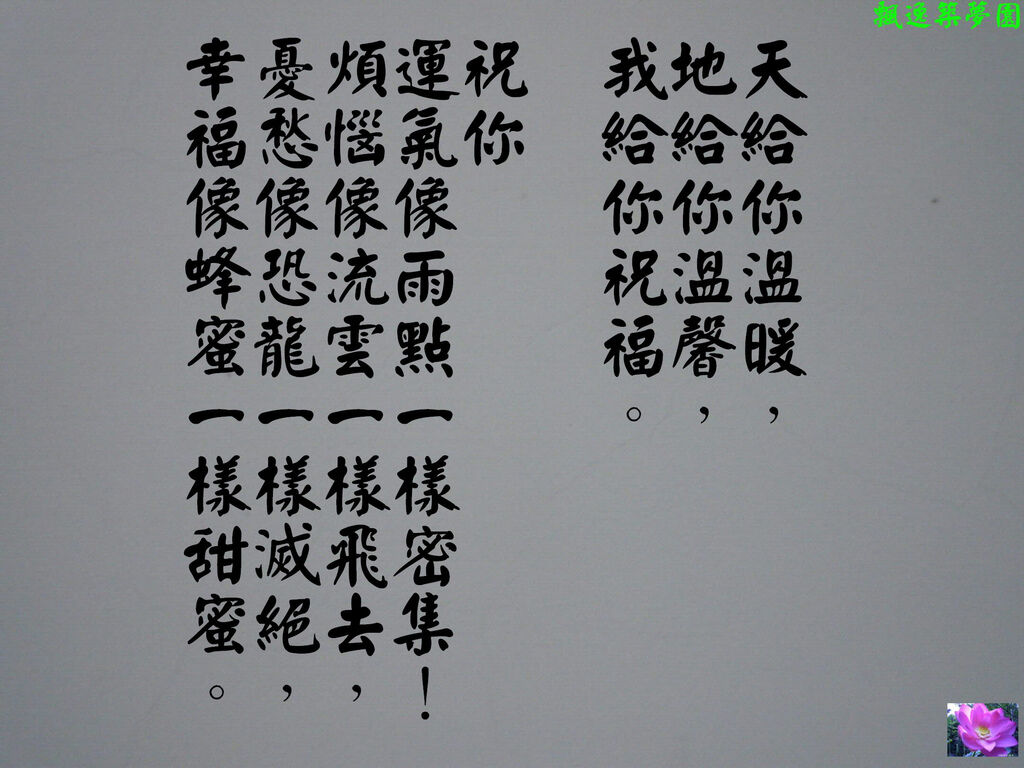 飄逸築夢園
天給你溫暖，
地給你溫馨，
我給你祝福。
祝你
運氣像雨點一樣密集！
煩惱像流雲一樣飛去，
憂愁像恐龍一樣滅絕，
幸福像蜂蜜一樣甜蜜。